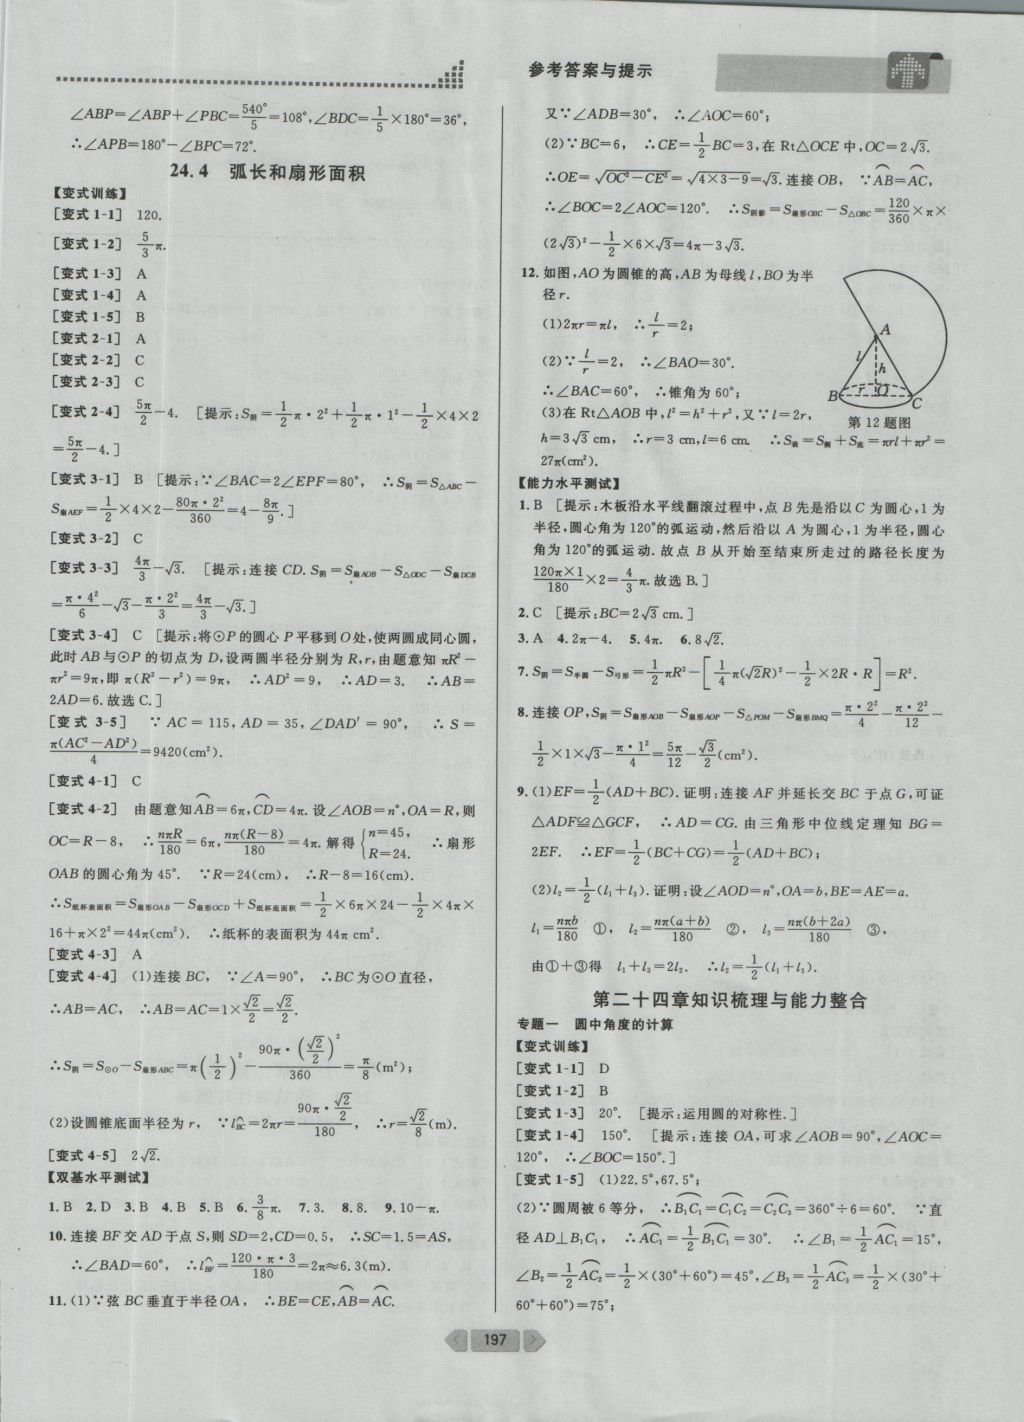 参考答案与提示
∠ABP=∠ABP+∠PBC=540°/5=108°,∠BDC=1/5×180°=36°,
∴∠APB=180°-∠BPC=72°.
24.4 弧长和扇形面积
【变式训练】
[变式 1-1] 120.
[变式 1-2] 5/3π.
[变式 1-3] A
[变式 1-4] A
[变式 1-5] B
[变式 2-1] A
[变式 2-2] C
[变式 2-3] C
[变式 2-4] 5π/2-4. [提示:S阴=1/2π·2²+1/2π·1²-1/2×4×2
=5π/2-4.]
[变式 3-1] B [提示:∵∠BAC=2∠EPF=80°, ∴S阴=S△ABC-
S扇AEF=1/2×4×2-80π·2²/360=4-8π/9.]
[变式 3-2] C
[变式 3-3] 4π/3-√3. [提示:连接 CD. S阴=S扇AOB-S△ODC-S扇DCB
=π·4²/6-√3-π·2²/3=4π/3-√3.]
[变式 3-4] C [提示:将⊙P的圆心 P 平移到 O 处,使两圆成同心圆,
此时 AB 与⊙P 的切点为 D,设两圆半径分别为 R,r,由题意知 πR²-
πr²=9π,即 π(R²-r²)=9π, ∴AD²=9, ∴AD=3. ∴AB=
2AD=6.故选 C.]
[变式 3-5] ∵AC=115,AD=35,∠DAD′=90°, ∴S=
π(AC²-AD²)/4=9420(cm²).
[变式 4-1] C
[变式 4-2] 由题意知⌒AB=6π,⌒CD=4π.设∠AOB=n°,OA=R,则
OC=R-8, ∴nπR/180=6π,nπ(R-8)/180=4π.解得{n=45, R=24. ∴扇形
OAB 的圆心角为 45°. ∵R=24(cm), ∴R-8=16(cm).
∴S纸杯表面积=S扇形OAB-S扇形OCD+S纸杯底面积=1/2×6π×24-1/2×4π×
16+π×2²=44π(cm²). ∴纸杯的表面积为 44π cm².
[变式 4-3] A
[变式 4-4] (1)连接 BC, ∵∠A=90°, ∴BC 为⊙O 直径,
∴AB=AC, ∴AB=AC=1×√2/2=√2/2,
∴S阴=S⊙O-S扇形ABC=π(1/2)²-90π·(√2/2)²/360=π/8(m²);
(2)设圆锥底面半径为 r, ∵l⌒BC=2πr=90π·√2/2/180, ∴r=√2/8(m).
[变式 4-5] 2√2.
【双基水平测试】
1.B 2.D 3.B 4.B 5.B 6.3/8π. 7.3. 8.8. 9.10-π.
10.连接 BF 交 AD 于点 S,则 SD=2,CD=0.5, ∴SC=1.5=AS,
∴∠BAD=60°, ∴l⌒BF=120·π·3/180=2π≈6.3(m).
11.(1)∵弦 BC 垂直于半径 OA, ∴BE=CE,⌒AB=⌒AC.
又∵∠ADB=30°, ∴∠AOC=60°;
(2)∵BC=6, ∴CE=1/2BC=3,在 Rt△OCE 中,OC=2√3.
∴OE=√(OC²-CE²)=√(4×3-9)=√3.连接 OB, ∵⌒AB=⌒AC,
∴∠BOC=2∠AOC=120°. ∴S阴影=S扇形OBC-S△OBC=120/360×π×
(2√3)²-1/2×6×√3=4π-3√3.
12.如图,AO 为圆锥的高,AB 为母线 l,BO 为半
径 r.
(1)2πr=πl, ∴l/r=2;
(2)∵l/r=2, ∴∠BAO=30°.
∴∠BAC=60°, ∴锥角为 60°;
(3)在 Rt△AOB 中,l²=h²+r²,又∵l=2r,
h=3√3 cm, ∴r=3 cm,l=6 cm. ∴S表=S侧+S底=πrl+πr²=
27π(cm²).
A
l
h
B
O
C
第 12 题图
【能力水平测试】
1.B [提示:木板沿水平线翻滚过程中,点 B 先是沿以 C 为圆心,1 为
半径,圆心角为 120°的弧运动,然后沿以 A 为圆心,1 为半径,圆心
角为 120°的弧运动.故点 B 从开始至结束所走过的路径长度为
120π×1/180×2=4/3π.故选 B.]
2.C [提示:BC=2√3 cm.]
3.A 4.2π-4. 5.4π. 6.8√2.
7.S阴=S半圆-S弓形=1/2πR²-[1/4π(√2R)²-1/2×2R·R]=R².
8.连接 OP,S阴=S扇形AOB-S扇形AOP-S△POM-S扇形BMQ=π·2²/4-π·2²/12-
1/2×1×√3-π·1²/4=5π/12-√3/2(cm²).
9.(1)EF=1/2(AD+BC).证明:连接 AF 并延长交 BC 于点 G,可证
△ADF≌△GCF, ∴AD=CG.由三角形中位线定理知 BG=
2EF. ∴EF=1/2(BC+CG)=1/2(AD+BC);
(2)l₂=1/2(l₁+l₃).证明:设∠AOD=n°,OA=b,BE=AE=a.
l₁=nπb/180 ①, l₂=nπ(a+b)/180 ②, l₃=nπ(b+2a)/180 ③,
由①+③得 l₁+l₃=2l₂. ∴l₂=1/2(l₁+l₃).
第二十四章知识梳理与能力整合
专题一 圆中角度的计算
【变式训练】
[变式 1-1] D
[变式 1-2] B
[变式 1-3] 20°. [提示:运用圆的对称性.]
[变式 1-4] 150°. [提示:连接 OA,可求∠AOB=90°,∠AOC=
120°, ∴∠BOC=150°.]
[变式 1-5] (1)22.5°,67.5°;
(2)∵圆周被 6 等分, ∴⌒B₁C₁=⌒C₁C₂=⌒C₂C₃=360°÷6=60°. ∵直
径 AD⊥B₁C₁, ∴⌒AC₁=1/2⌒B₁C₁=30°. ∴∠B₁=1/2⌒AC₁=15°,
∠B₂=1/2⌒AC₂=1/2×(30°+60°)=45°,∠B₃=1/2⌒AC₃=1/2×(30°+
60°+60°)=75°;
197